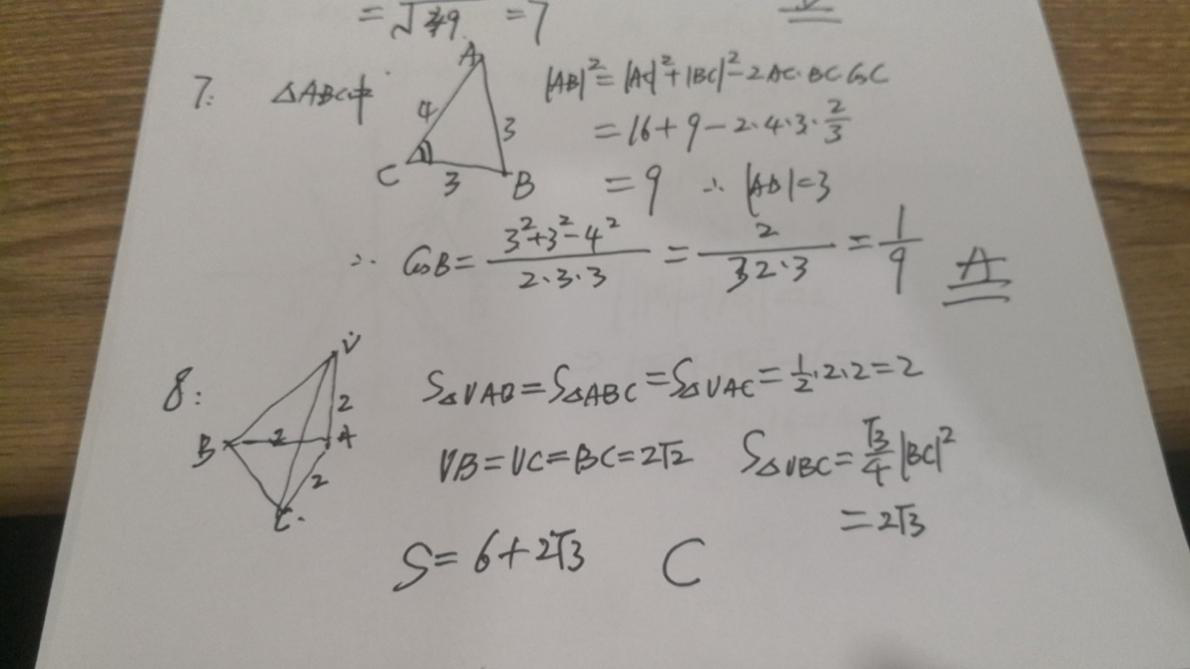 = √49 = 7
7: △ABC中
|AB|² = |AC|² + |BC|² - 2AC·BC CosC
= 16 + 9 - 2·4·3·2/3
= 9 ∴ |AB| = 3
A 4 3 C 3 B
∴ CosB = (3²+3²-4²)/(2·3·3) = 2/(32·3) = 1/9 A
8:
V 2 B 2 A 2 C
S△VAB = S△ABC = S△VAC = 1/2·2·2 = 2
VB = VC = BC = 2√2 S△VBC = √3/4 |BC|²
= 2√3
S = 6 + 2√3 C